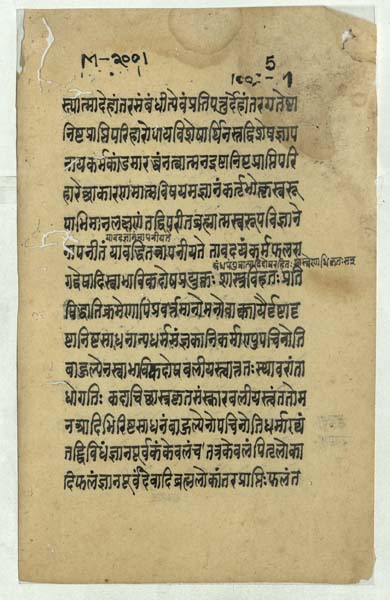 M-2001
5
स्त्यात्मादेहांतरसंबंधीत्येवंप्रतिपत्तुर्देहांतरगतेष्टा
निष्टप्राप्तिपरिहारोपायविशेषार्थिनस्तद्विशेषज्ञाप
नायकर्मकांडमारब्धंनत्वात्मनइष्टानिष्टप्राप्तिपरि
हारेच्छाकारणमात्मविषयमज्ञानंकर्तृभोक्तृस्वरू
पाभिमानलक्षणंतद्विपरीतब्रह्मात्मस्वरूपविज्ञाने
नापनीतंयावद्धितन्नापनीयतेतावदयंकर्मफलरा
गद्वेषादिस्वाभाविकदोषप्रयुक्तःशास्त्रविहितःप्रति
षिद्धातिक्रमेणापिप्रवर्त्तमानोमनोवाक्कायैर्दृष्टादृ
ष्टानिष्टसाधनान्यधर्मसंज्ञकानिकर्माण्युपचिनोति
बाहुल्येनस्वाभाविकदोषबलीयस्त्वात्ततःस्थावरांता
धोगतिः कदाचिच्छास्त्रकृतसंस्कारबलीयस्त्वंततोम
नआदिभिरिष्टसाधनंबाहुल्येनोपचिनोतिधर्माख्यं
तद्द्विविधंज्ञानपूर्वकंकेवलंच तत्रकेवलंपितृलोका
दिफलंज्ञानपूर्वंदेवादिब्रह्मलोकांतरप्राप्तिःफलंत